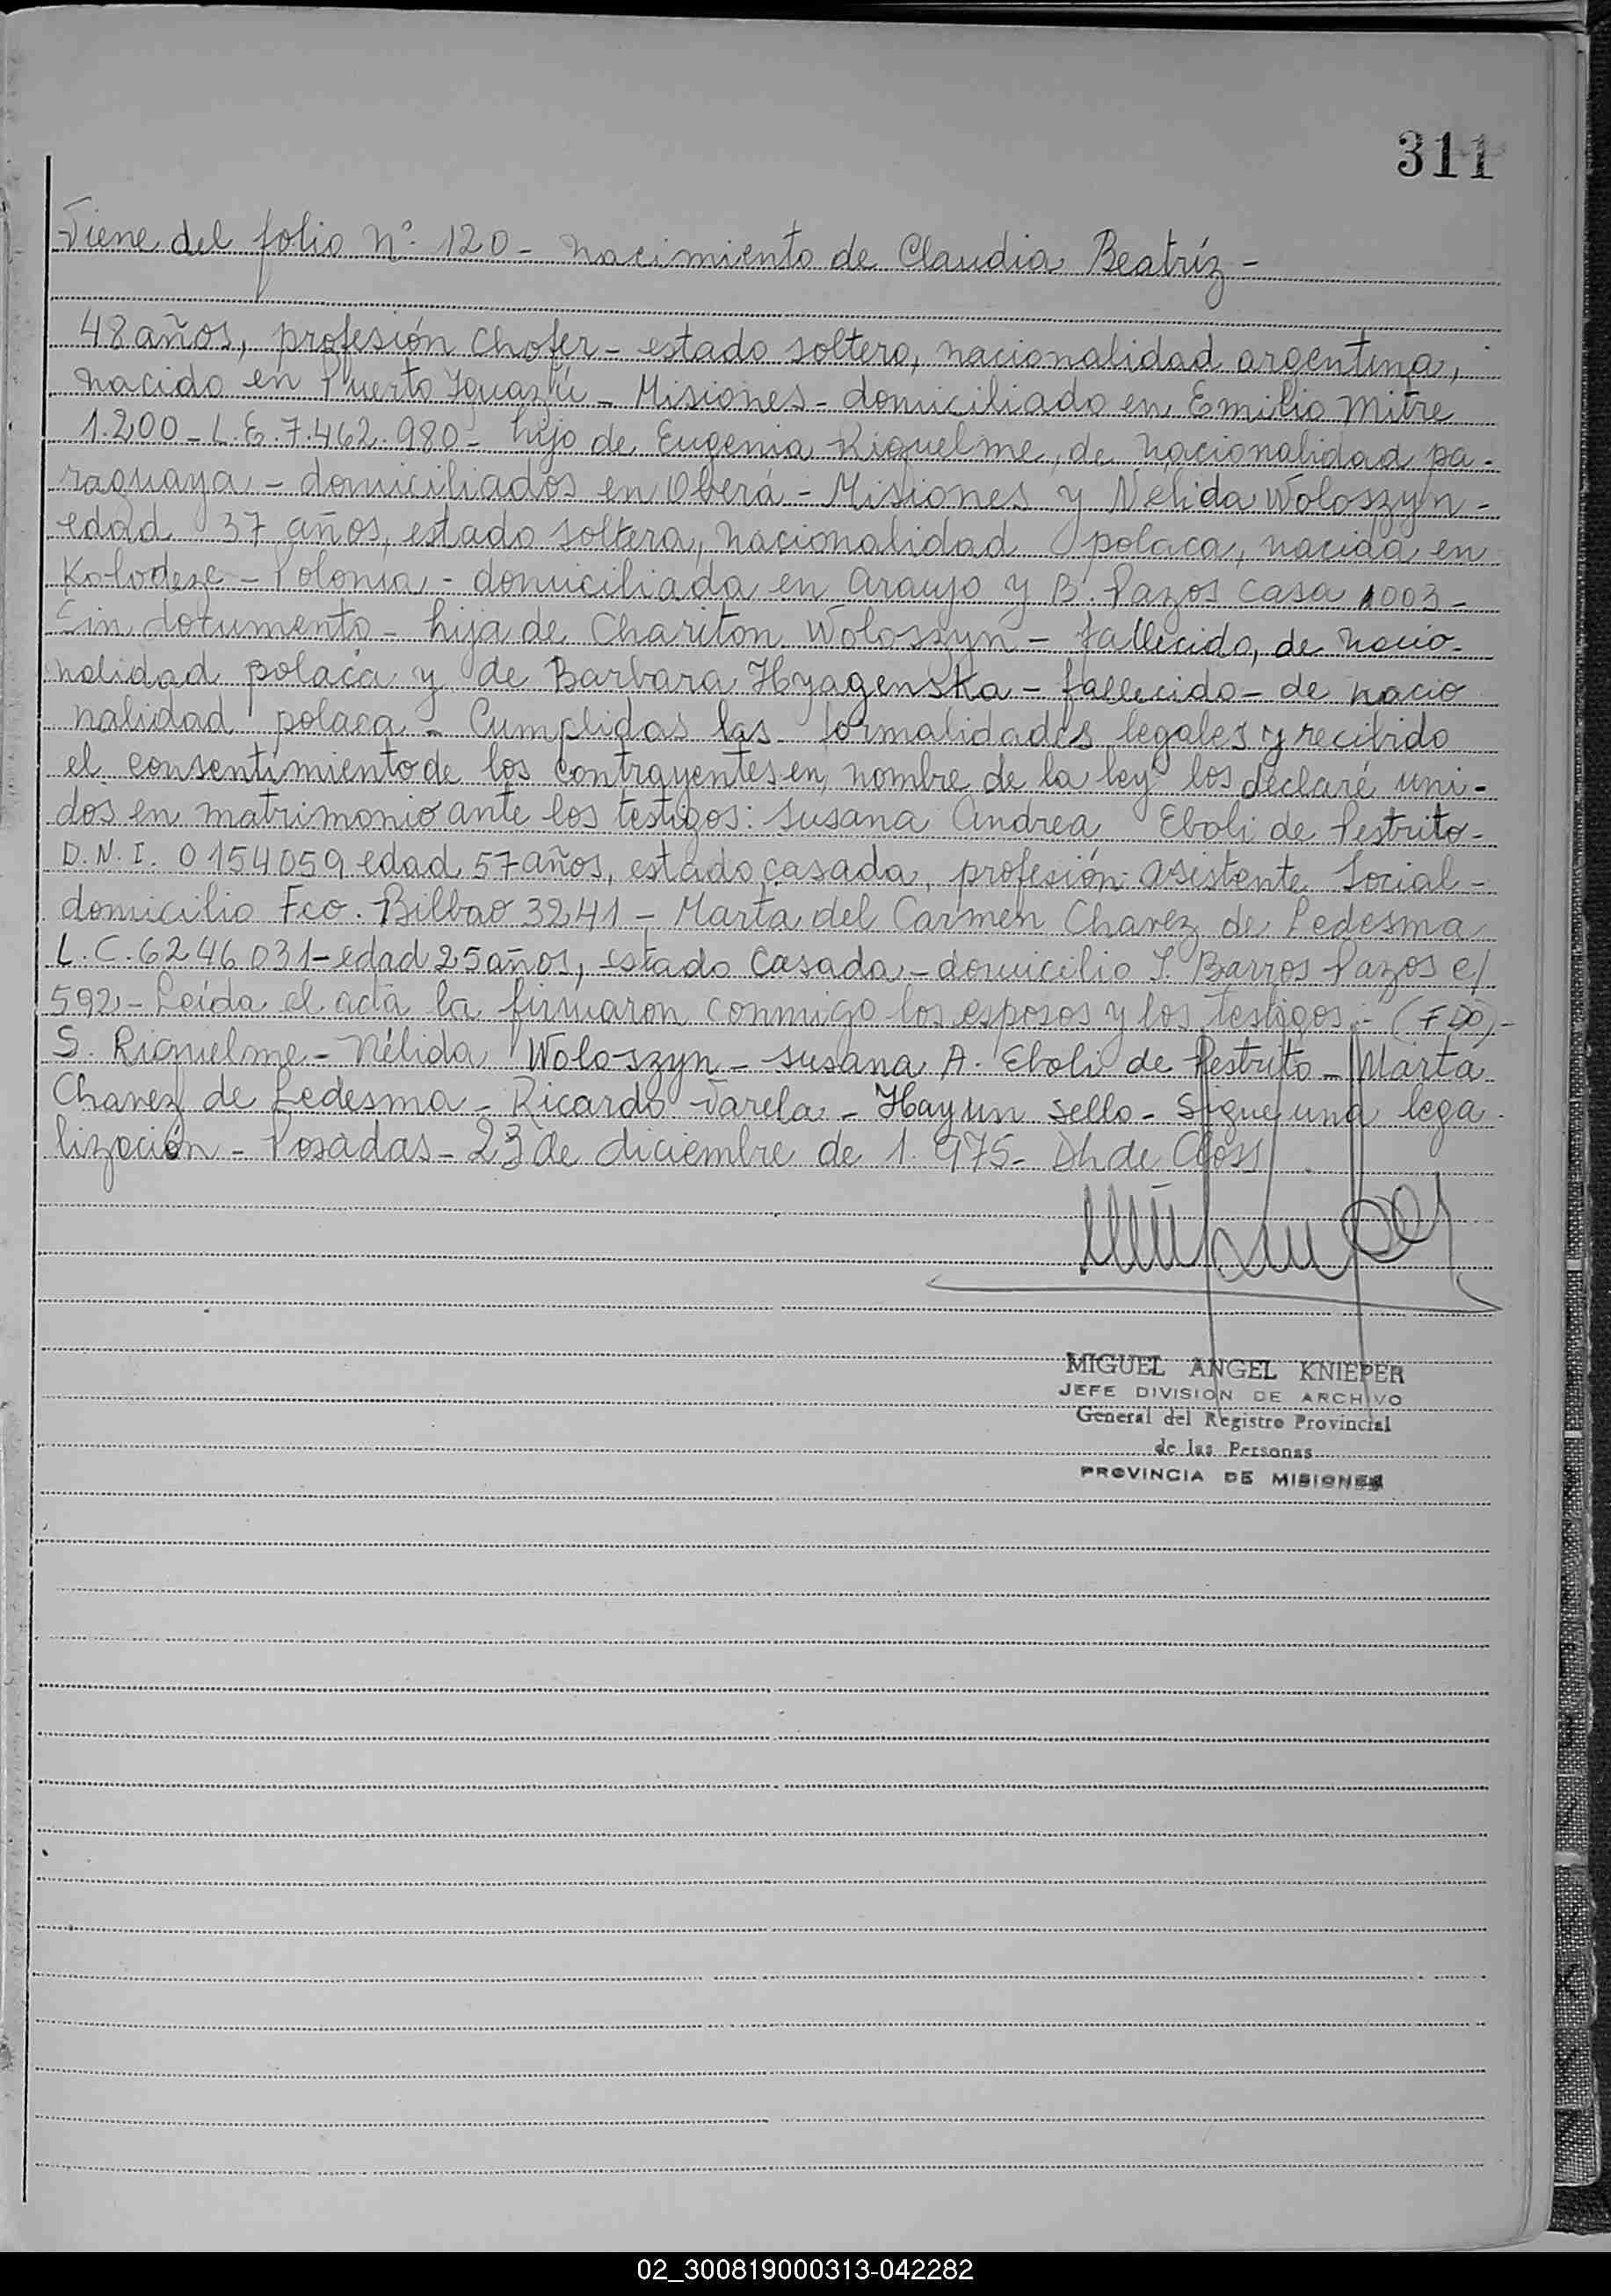 311
Viene del folio Nº 120 - Nacimiento de Claudia Beatríz -
48 años, profesión Chofer - estado soltero, nacionalidad argentina,
nacido en Puerto Iguazú - Misiones - domiciliado en Emilio Mitre
1.200 - L.E. 7.462.980 - hijo de Eugenia Riquelme, de nacionalidad pa-
raguaya - domiciliados en Oberá - Misiones y Nélida Woloszyn -
edad 37 años, estado soltera, nacionalidad polaca, nacida en
Kolodeze - Polonia - domiciliada en Araujo y B. Pazos Casa 1003 -
Sin documento - hija de Chariton Woloszyn - fallecido, de nacio-
nalidad polaca y de Barbara Hyagenska - fallecido - de nacio
nalidad polaca - Cumplidas las formalidades legales y recibido
el consentimiento de los contrayentes en nombre de la ley los declaré uni-
dos en matrimonio ante los testigos: Susana Andrea Eboli de Pestrito -
D.N.I. 0154059 edad 57 años, estado casada, profesión Asistente Social -
domicilio Fco. Bilbao 3241 - Marta del Carmen Chavez de Ledesma
L.C. 6246031 - edad 25 años, estado Casada - domicilio J. Barros Pazos C/
592 - Leída el acta la firmaron conmigo los esposos y los testigos - (FDO) -
S. Riquelme - Nélida Woloszyn - Susana A. Eboli de Pestrito - Marta
Chavez de Ledesma - Ricardo Varela - Hay un sello - Sigue una lega-
lización - Posadas - 23 de diciembre de 1.975 - Dh de Closs
MIGUEL ANGEL KNIEPER
JEFE DIVISION DE ARCHIVO
General del Registro Provincial
de las Personas
PROVINCIA DE MISIONES
02_300819000313-042282